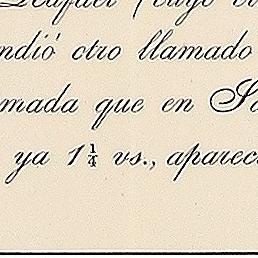 ndió otro llamado
mada que en
ya 1¼ vs., apareci